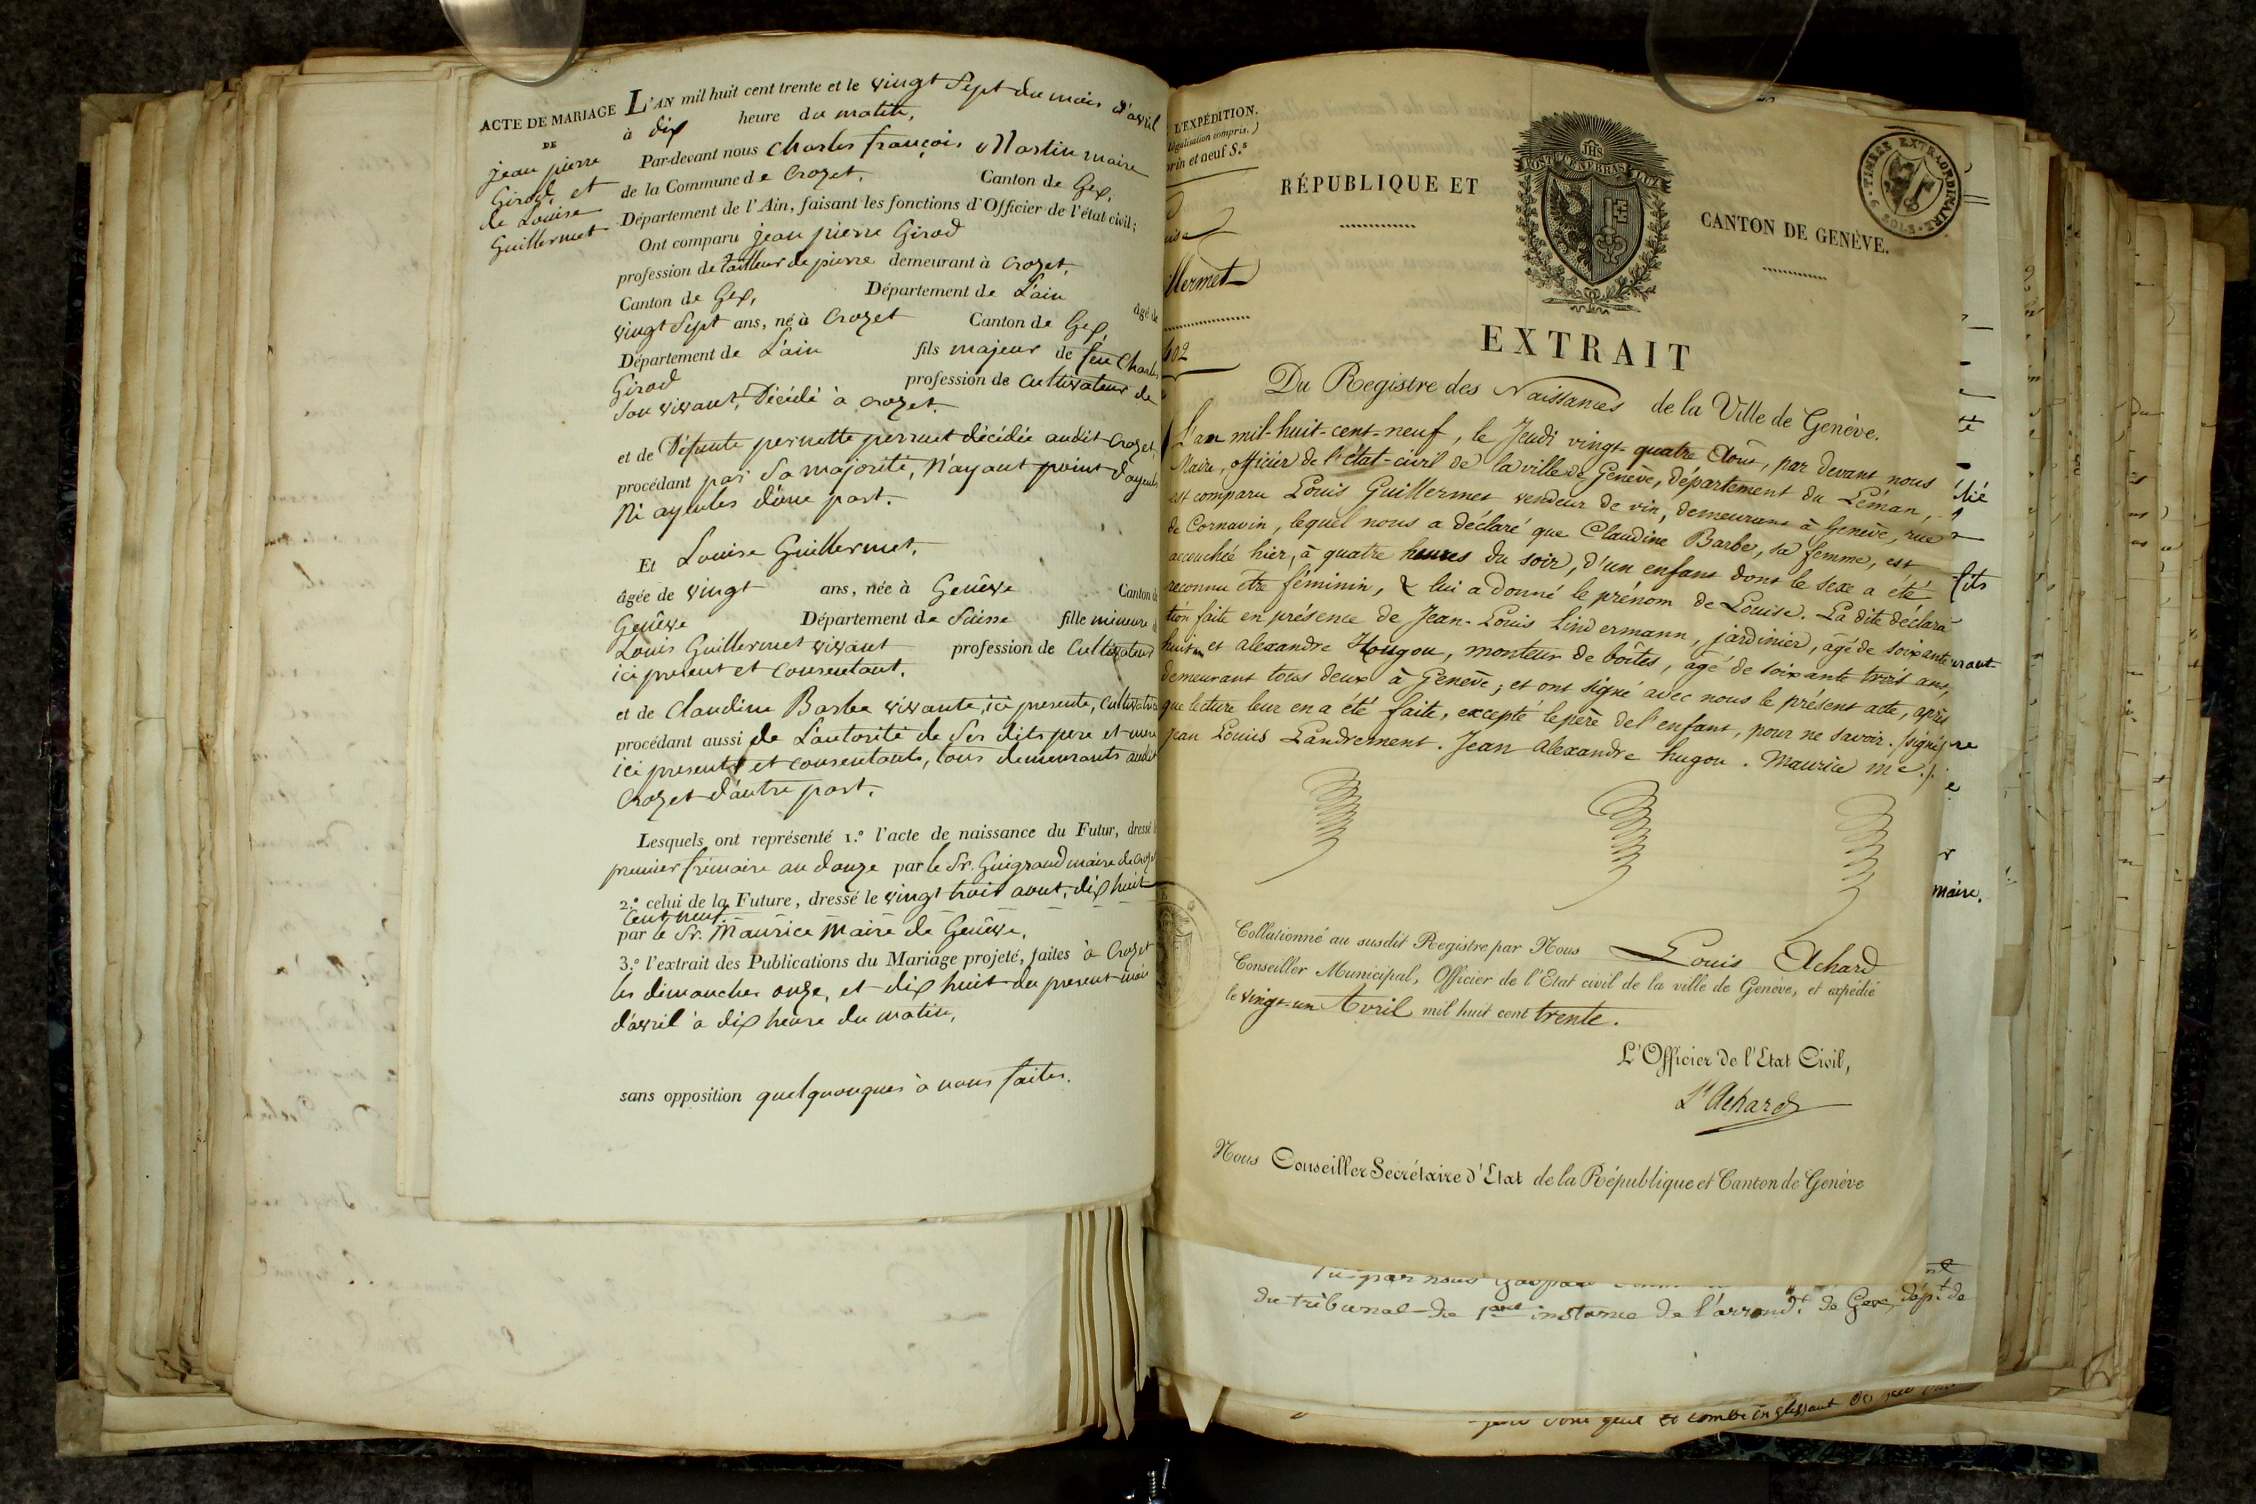 ACTE DE MARIAGE
DE
jean pierre
Girod, et
de Louise
Guillermet
L'AN mil huit cent trente et le vingt Sept du mois d'avril
à dix heure du matin,
Par-devant nous Charles françois Martin maire
de la Commune de Crozet, Canton de Gex,
Département de l'Ain, faisant les fonctions d'Officier de l'état civil;
Ont comparu jean pierre Girod
profession de tailleur de pierre demeurant à Crozet,
Canton de Gex, Département de L'ain âgé de
vingt Sept ans, né à Crozet Canton de Gex,
Département de L'ain fils majeur de feu Charles
Girod profession de Cultivateur de
Son vivant, Décédé à Crozet.
et de Défunte pernette perruet décédée audit Crozet,
procédant par Sa majorité, N'ayant point d'ayeuls
Ni ayeules d'une part.
Et Louise Guillermet,
âgée de vingt ans, née à Genêve Canton de
Genêve Département de Suisse fille mineure
Louis Guillermet vivant profession de Cultivateur
ici présent et consentant.
et de Claudine Barbe vivante, ici presente, Cultivatrice
procédant aussi de L'autorité de Ses dits pere et mere
ici presents et consentants, tous demeurants audit
Crozet d'autre part.
Lesquels ont représenté 1.º l'acte de naissance du Futur, dressé le
premier frimaire an douze par le Sr. Guigraud maire de Crozet
2.º celui de la Future, dressé le vingt trois aout, dix huit
Cent neuf
par le Sr. Maurice Maire de Genêve,
3.º l'extrait des Publications du Mariage projeté, faites à Crozet
les dimanches onze, et dix huit du present mois
d'avril à dix heure du matin,
sans opposition quelquonques à nous faites.
L'EXPÉDITION.
légalisation compris.)
orin et neuf S.s
illermet
RÉPUBLIQUE ET
JHS
POST TENEBRAS LUX
CANTON DE GENÈVE.
TIMBRE EXTRAORDINAIRE
SOLS
EXTRAIT
Du Registre des Naissances de la Ville de Genève.
L'an mil-huit-cent-neuf, le Jeudi vingt-quatre Août, par devant nous
Maire, officier de l'état-civil de la ville de Genève, département du Léman,
est comparu Louis Guillermet vendeur de vin, demeurant à Genève, rue
de Cornavin, lequel nous a déclaré que Claudine Barbe, sa femme, est
accouchée hier, à quatre heures du soir, d'un enfant dont le sexe a été
reconnu être féminin, & lui a donné le prénom de Louise. La dite déclara
tion faite en présence de Jean-Louis Lindermann, jardinier, âgé de soixante
huit et alexandre Hougou, monteur de boîtes, âgé de soixante trois ans,
demeurant tous deux à Genève; et ont signé avec nous le présent acte, après
que lecture leur en a été faite, excepté le père de l'enfant, pour ne savoir. /signé/
Jean Louis Landrement. Jean alexandre hugou. Maurice me./.
Collationné au susdit Registre par Nous Louis Achard
Conseiller Municipal, Officier de l'Etat civil de la ville de Geneve, et expédié
le vingt-un Avril mil huit cent trente.
L'Officier de l'Etat Civil,
Ls Achard
Nous Conseiller Secrétaire d'Etat de la République et Canton de Genève
maire.
du tribunal de 1ere instance de l'arrond.t de Gex, dép.t de